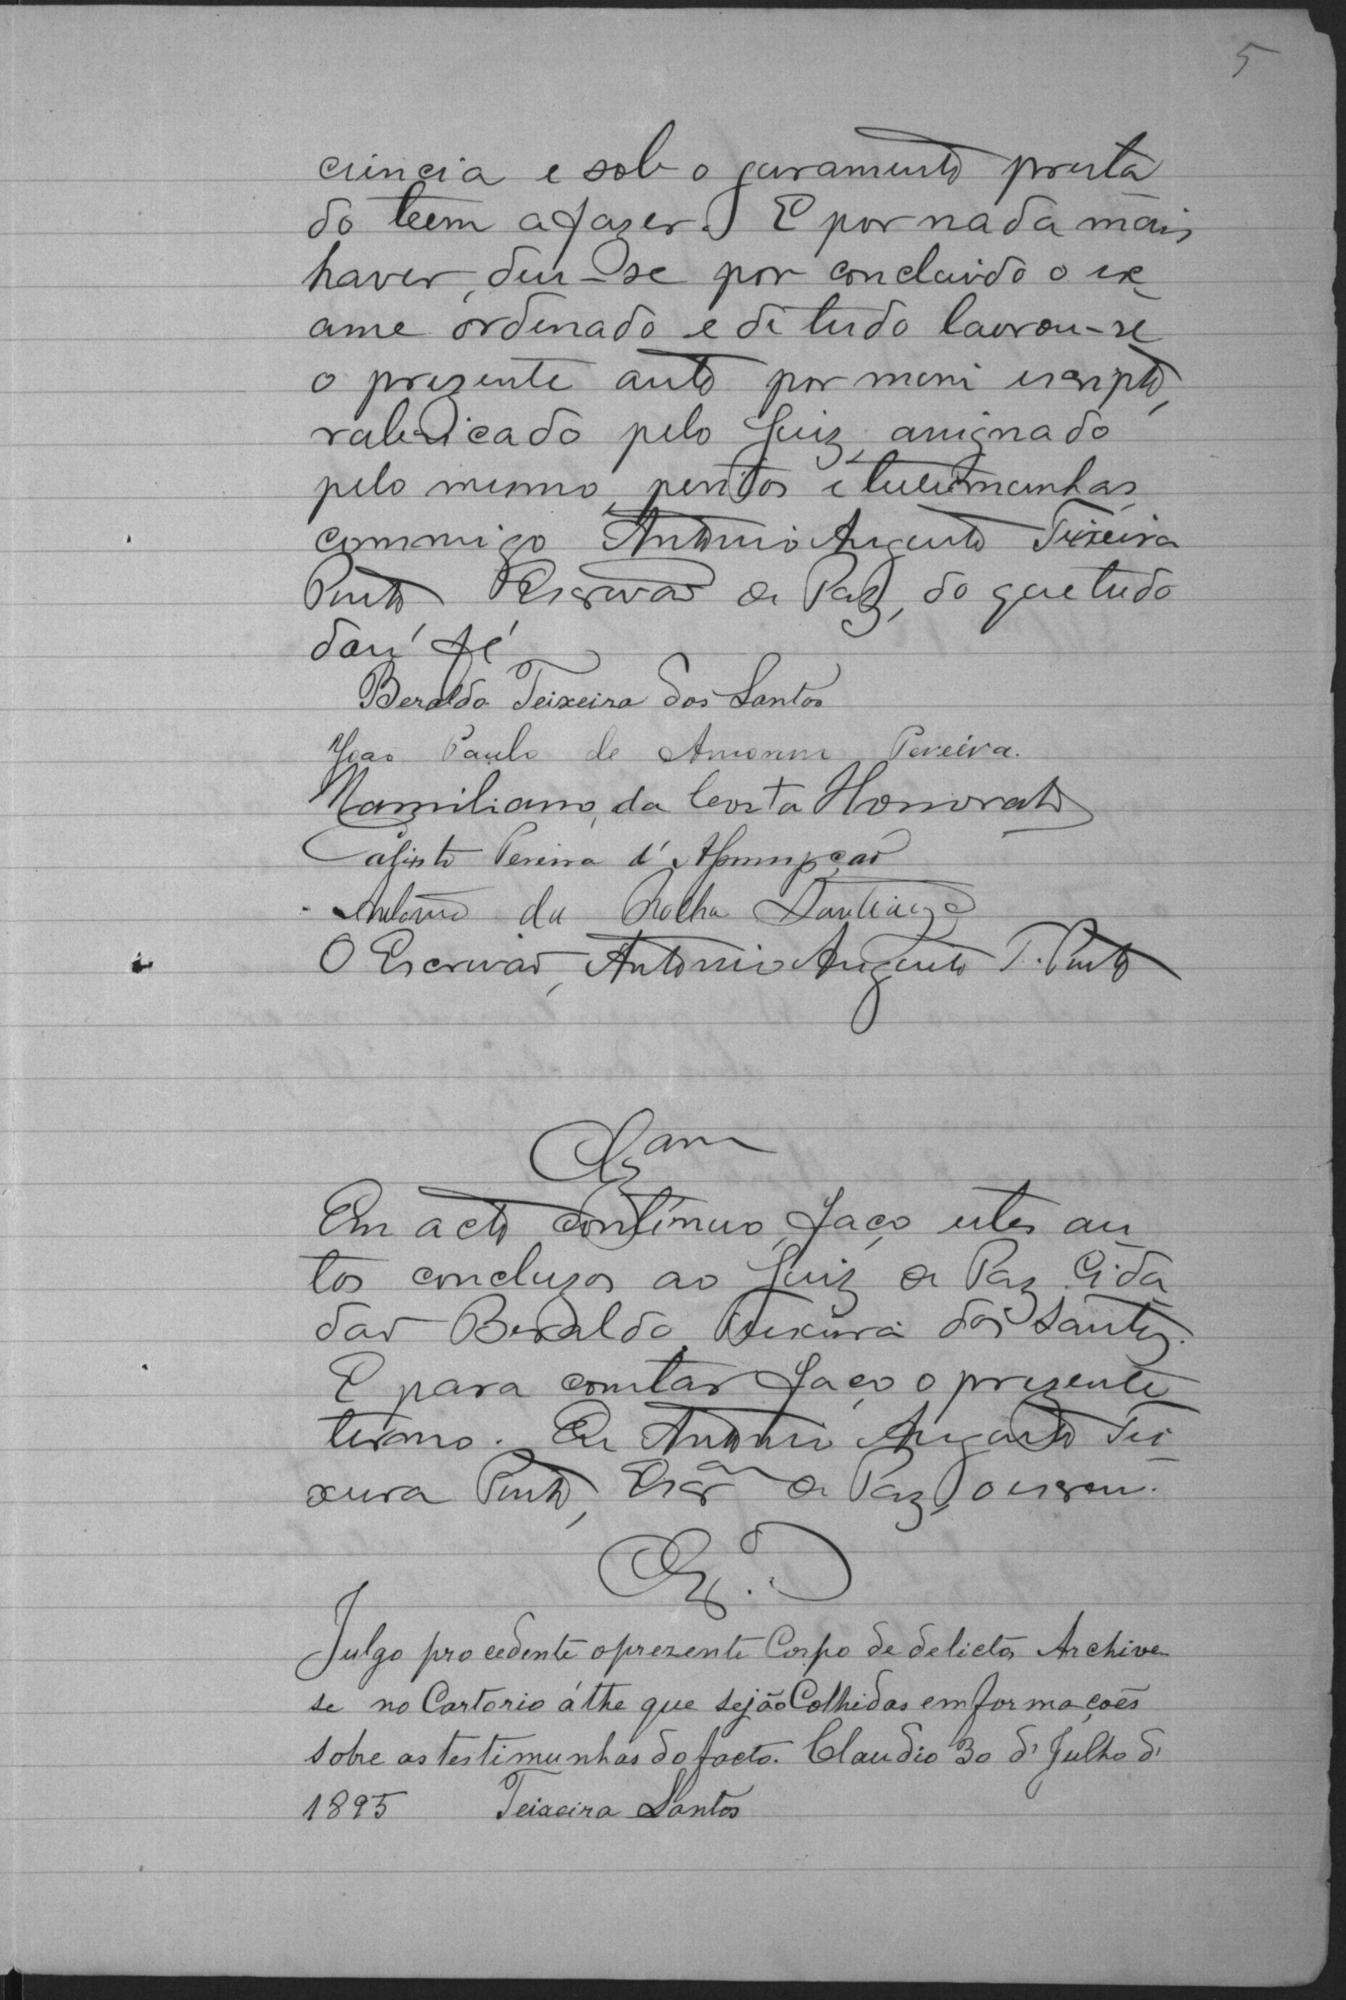 5
ciencia e sob o juramento presta
do teem a fazer. E por nada mais
haver, deu-se por concluido o ex
ame ordenado e de tudo lavrou-se
o prezente auto por mim escripto,
rubricado pelo Juiz, assignado
pelo mesmo, peritos e testemunhas
commigo Antonio Augusto Teixeira
Pinto Escrivão de Paz, do que tudo
dou fé
Beraldo Teixeira dos Santos
João Paulo de Amorim Pereira.
Mamiliano da Costa Honorato
Calisto Pereira d'Assumpção
Antonio da Rocha Santiago
O Escrivão, Antonio Augusto T. Pinto
Clzam
Em acto continuo, faço estes au
tos concluzos ao Juiz de Paz Cida
dão Beraldo Teixeira dos Santos.
E para constar faço o prezente
termo. Eu Antonio Augusto Tei
xeira Pinto, Escram de Paz, o escrevi.
Clz.
Julgo procedente o prezente Corpo de delicto Archive
se no Cartorio áthe que sejão Colhidas emformações
sobre as testimunhas do facto. Claudio 30 d' Julho d'
1895 Teixeira Santos